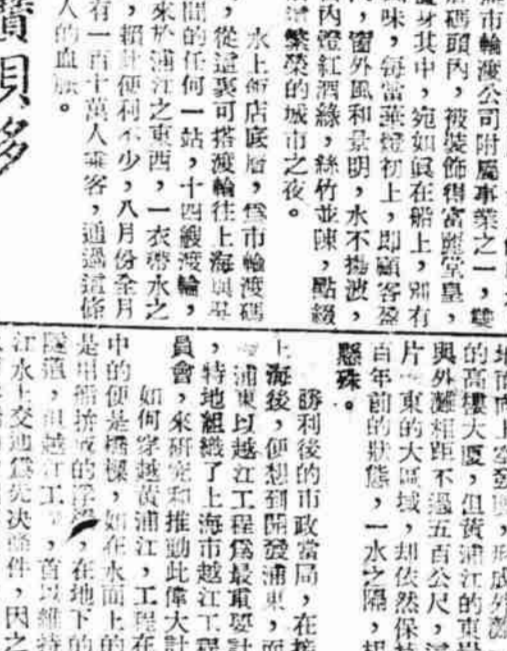 市輪渡公司附屬事業之一，雙
碼頭內，被裝飾得富麗堂皇，
身其中，宛如眞在船上，別有
味，每當華燈初上，即顧客盈
，窗外風和景明，水不揚波，
內燈紅酒綠，絲竹並陳，點綴
繁榮的城市之夜。
水上飯店底層，爲市輪渡碼
，從這裏可搭渡輪往上海與
間的任何一站，十四艘渡輪，
來於浦江之東西，一衣帶水之
，賴此便利不少，八月份全月
有一百十萬人乘客，通過這條
人的血脈。
的高樓大廈，但黃浦江的東
與外灘相距不過五百公尺，
片東的大區域，却依然保
百年前的狀態，一水之隔，
懸殊。
勝利後的市政當局，在接
上海後，便想到開發浦東，而
浦東以越江工程爲最重要計
，特地組織了上海市越江工程
員會，來研究和推動此偉大計
如何穿越黃浦江，工程在
中的便是橋樑，如在水面上的
是用船拚成的浮，在地下的
隧道，但越江工，首以維持
江水上交通爲先決條件，因之